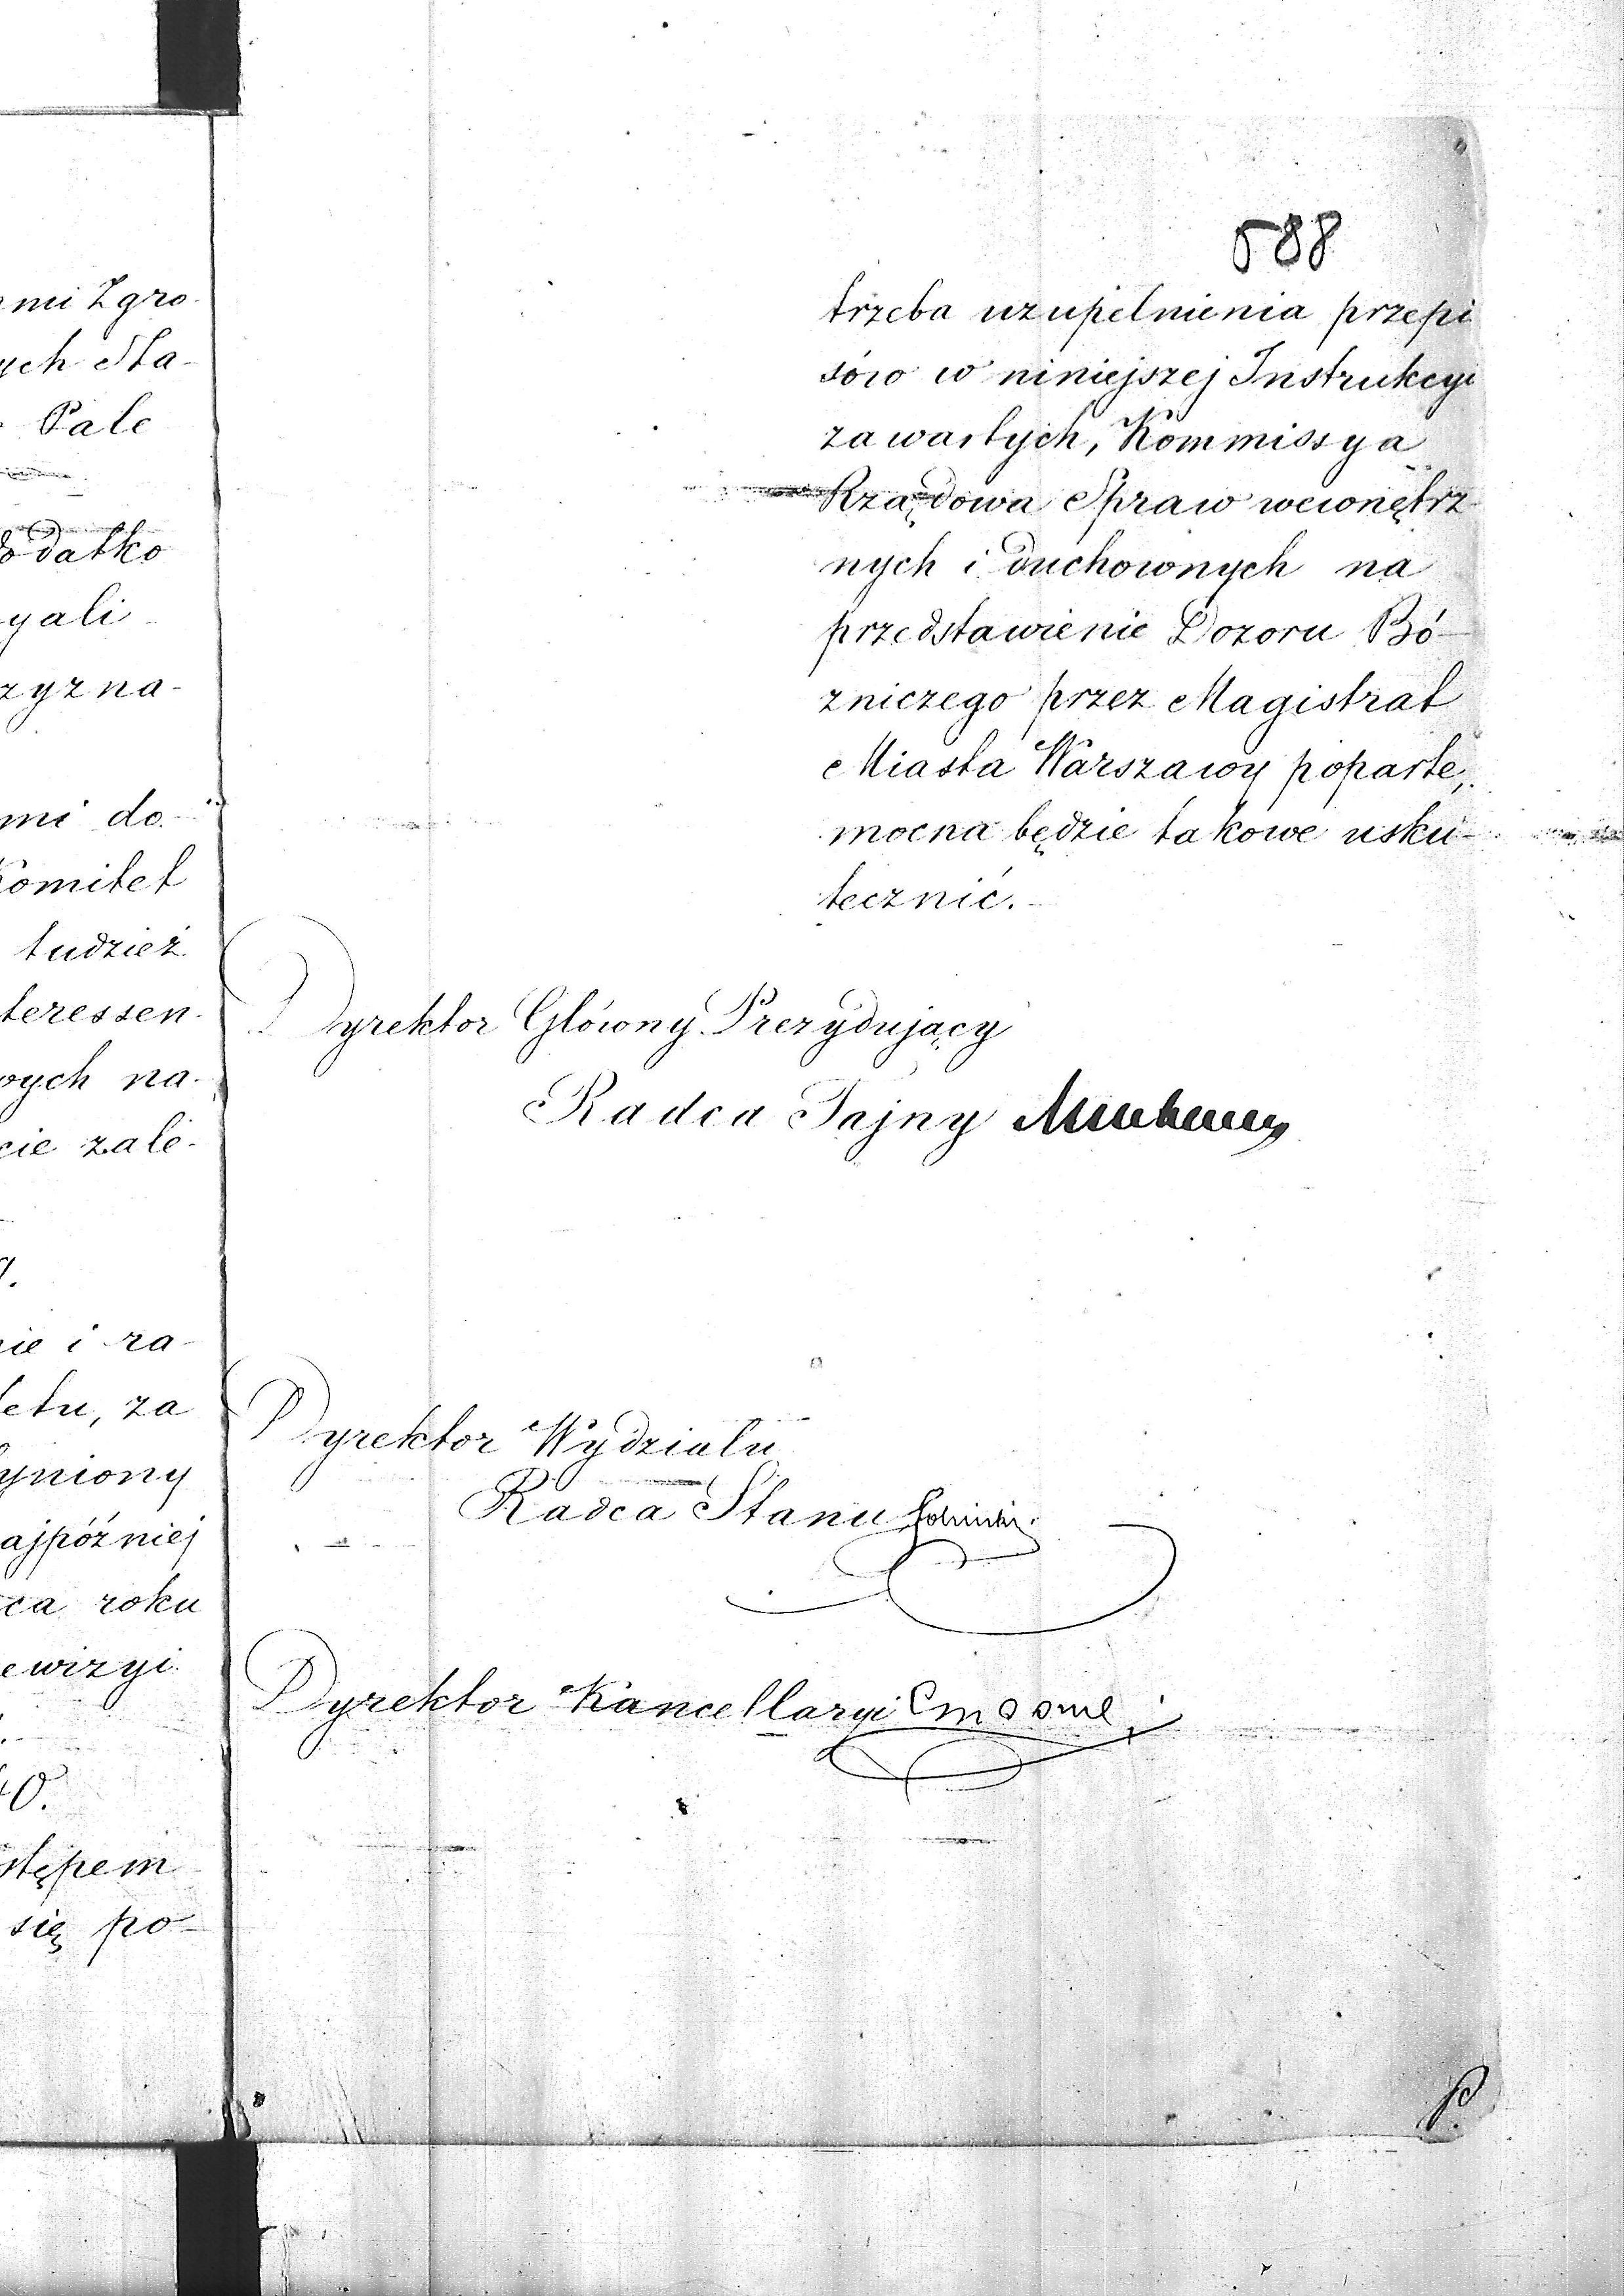 mi Zgro-
ych Sta-
Pale
dodatko
yali
zyzna-
mi do-
Komitet
tudzież
teressen-
wych na-
cie zale-
ie i za-
tetu, za
yniony
ajpóźniej
ca roku
ewizyi.
40.
stępem
się po-
588
trzeba uzupełnienia przepi
sów w niniejszej Instrukcyi
zawartych, Kommissya
Rządowa Spraw wewnętrz-
nych i duchownych na
przedstawienie Dozoru Bó-
zniczego przez Magistrat
Miasta Warszawy poparte,
mocna będzie takowe usku-
tecznić.-
Dyrektor Główny Prezydujący
Radca Tajny
Dyrektor Wydziału
Radca Stanu
Dyrektor Kancellaryi